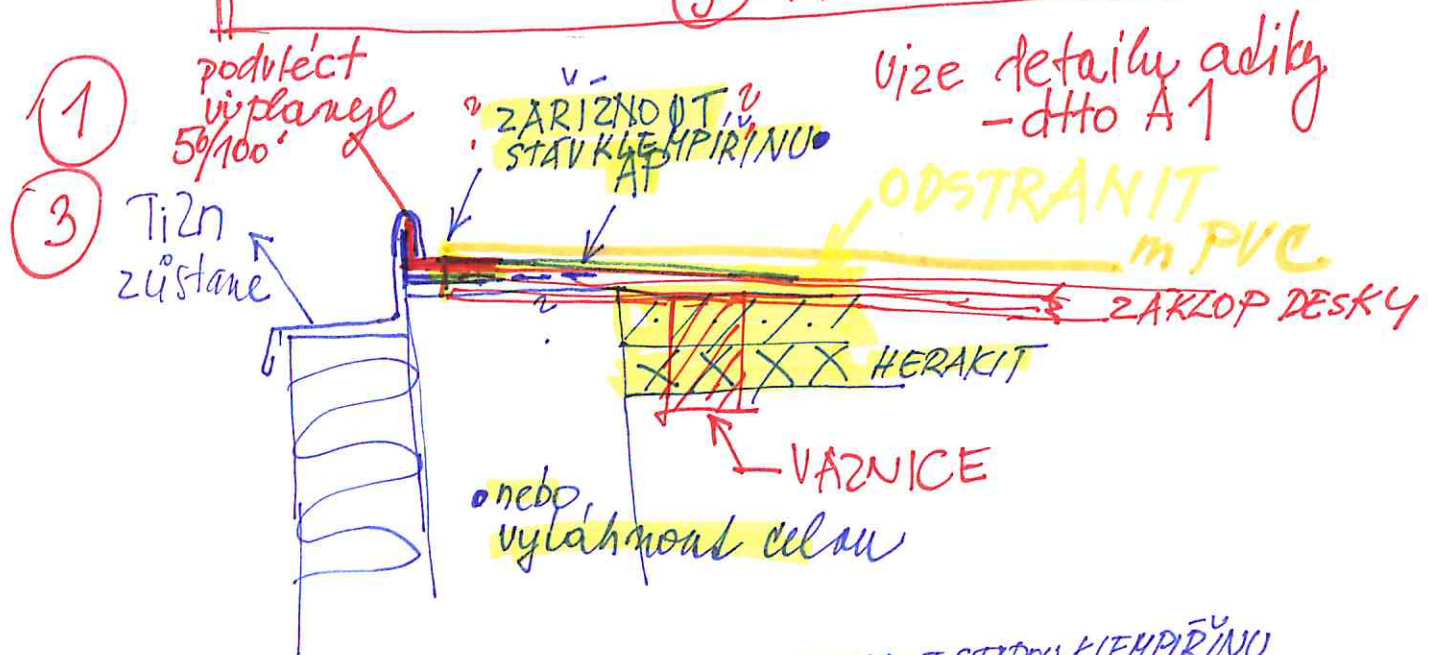 1
3
podvléct
50/100
TiZn
zůstane
? ZAŘÍZNOUT ?
STÁV KLEMPÍŘINU •
AP
vize detailu atiky
- dtto A1
ODSTRANIT
m PVC
ZÁKLOP DESKY
HERAKLIT
VAZNICE
• nebo
vytáhnout celou
KLEMPÍŘINU